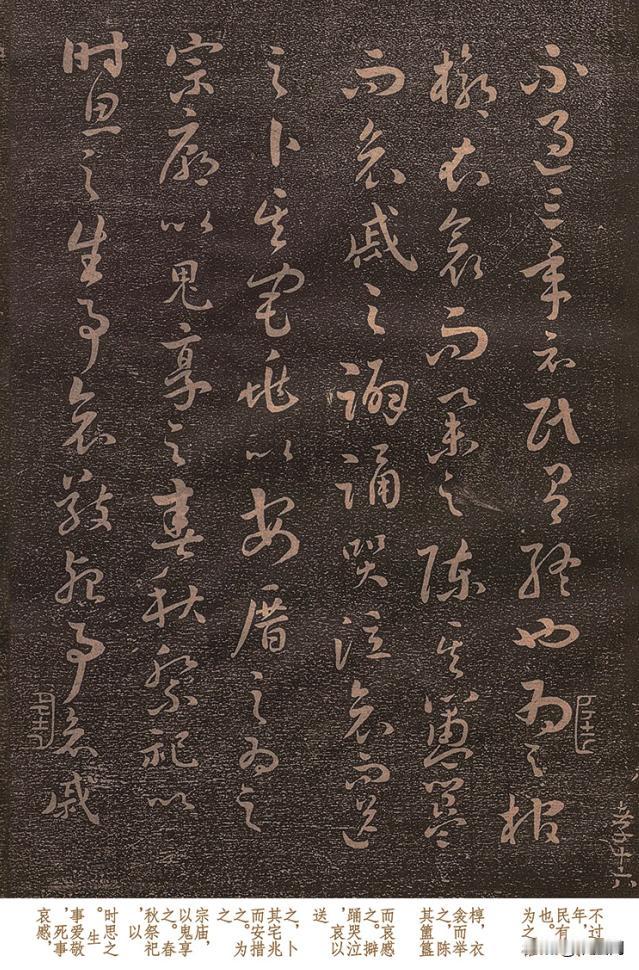 孝十六
不過三年示民有終也為之棺
槨衣衾而舉之陳其簠簋
而哀戚之擗踊哭泣哀而送
之卜其宅兆以安厝之為之
宗廟以鬼享之春秋祭祀以
時思之生事愛敬死事哀戚
不过
年,
民有
也。
为之
椁,衣
衾而举
之,陈
其簠簋
而哀感
之。擗
踊哭泣
,哀以
送
之,卜
其宅兆
而安措
之。为
之
宗庙,
以鬼享
之。春
秋祭祀
,以
时思之
。生
事爱敬
,死事
哀感,